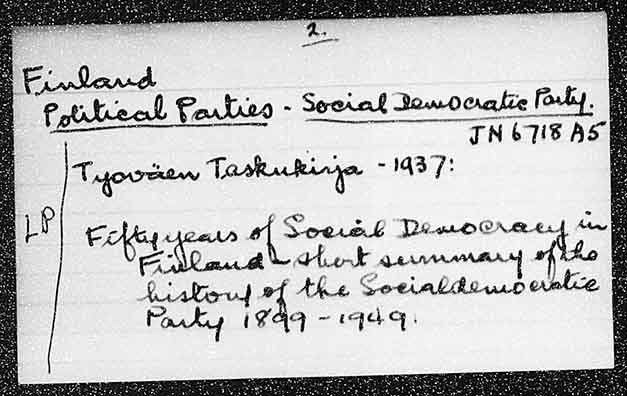 2.
Finland
Political Parties - Social Democratic Party.
JN 6718 A5
Tyoväen Taskukirja - 1937:
LP
Fifty years of Social Democracy in
Finland - short summary of the
history of the Socialdemocratic
Party 1899 - 1949.